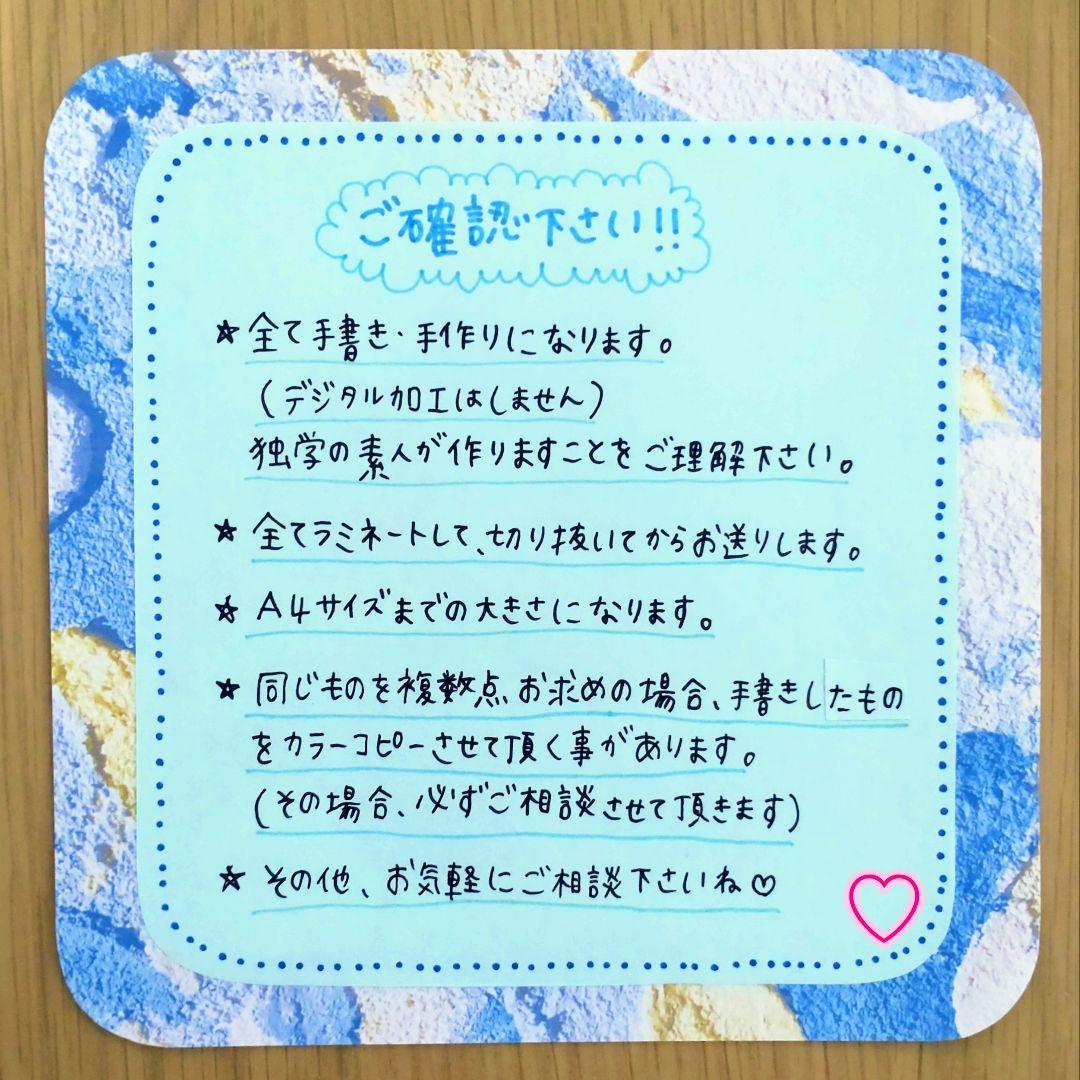 ご確認下さい!!
☆ 全て手書き・手作りになります。
(デジタル加工はしません)
独学の素人が作りますことをご理解下さい。
☆ 全てラミネートして、切り抜いてからお送りします。
☆ A4サイズまでの大きさになります。
☆ 同じものを複数点お求めの場合、手書きしたもの
をカラーコピーさせて頂く事があります。
(その場合、必ずご相談させて頂きます)
☆ その他、お気軽にご相談下さいね♡